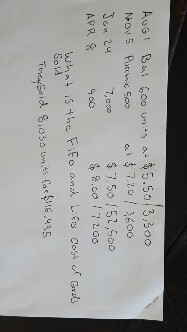 AUG 1 Bal 600 units at $5.50/3,300
NOV 5 Purchase 500 at $7.20/3600
Jan 24 7,000 $7.50/52,500
APR 8 900 $8.00/7200
What is the FiFo and LiFo cost of Goods
Sold
They Sold 8,030 units for $116,435